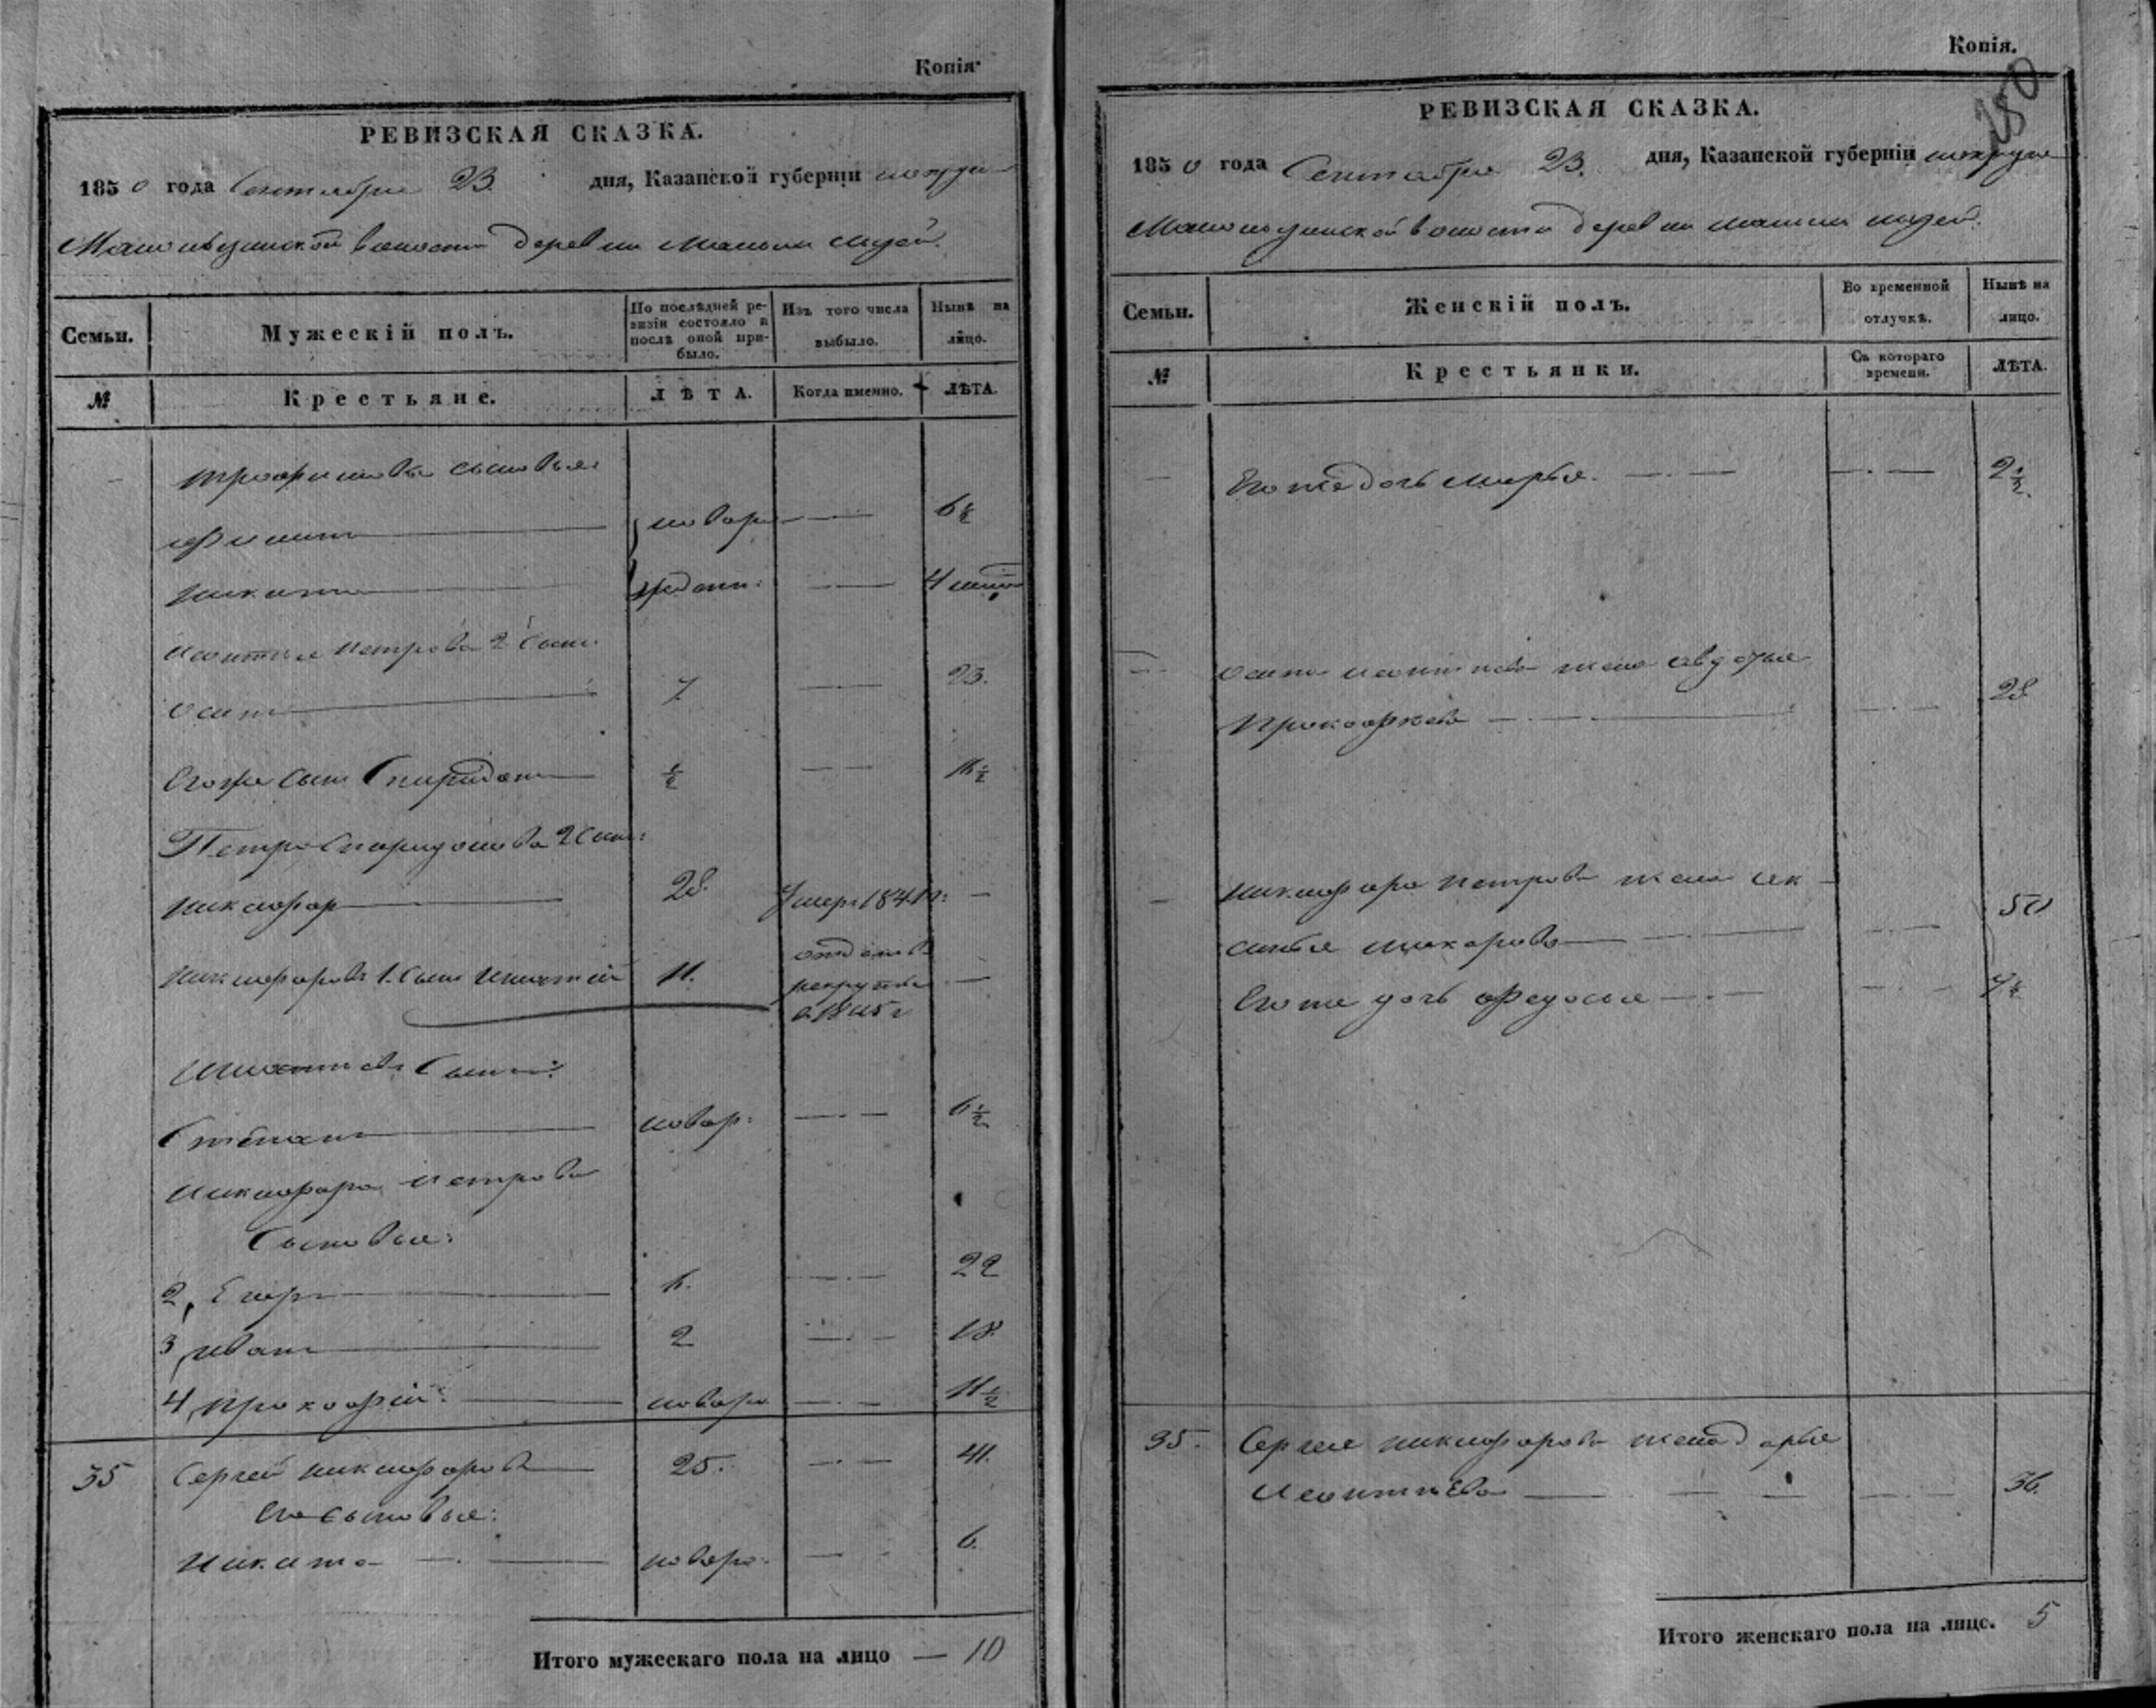 Копія.
РЕВИЗСКАЯ СКАЗКА.
1850 года Сентября 23. дня, Казанской губерніи
волости деревни
Семьи.
Мужескій полъ.
По послѣдней ревизіи состояло и послѣ оной прибыло.
Изъ того числа выбыло.
Нынѣ на лицо.
№
Крестьяне.
ЛѢТА.
Когда именно.
ЛѢТА.
Трофимовы сыновья
новоро 6½
Никита ждени: 4
Леонтья Петрова 2 сын.
Осип 7 23.
Егоже сын Спиридон ½ 16½
Петра Спиридонова 2 сын:
Никифор 28. Умер 184
Никифоров 1. сын Игнатій 11. отдан в
рекруты
в 1845 г
Игнатьев сын:
Степан новор: 6½
Никифора Петрова
сыновья:
2, Егор 6. 22
3, Иван 2 18.
4, Прокофій новоро 11½
35 Сергей Никифоров 25. 41.
Его сыновья:
Никита новоро 6.
Итого мужескаго пола на лицо — 10
Копія.
180
РЕВИЗСКАЯ СКАЗКА.
1850 года Сентября 23. дня, Казанской губерніи
волости деревни
Семьи.
Женскій полъ.
Во временной отлучкѣ.
Нынѣ на лицо.
№
Крестьянки.
Съ котораго времени.
ЛѢТА.
Егоже дочь Марья. 2½
Осипа Леонтьева жена Авдотья
Прокофьева 28
Никифора Петрова жена Ак
синья Макарова 50
Егоже дочь Федосья 7½
35. Сергея Никифорова жена Дарья
Леонтьева 36.
Итого женскаго пола на лицо. 5